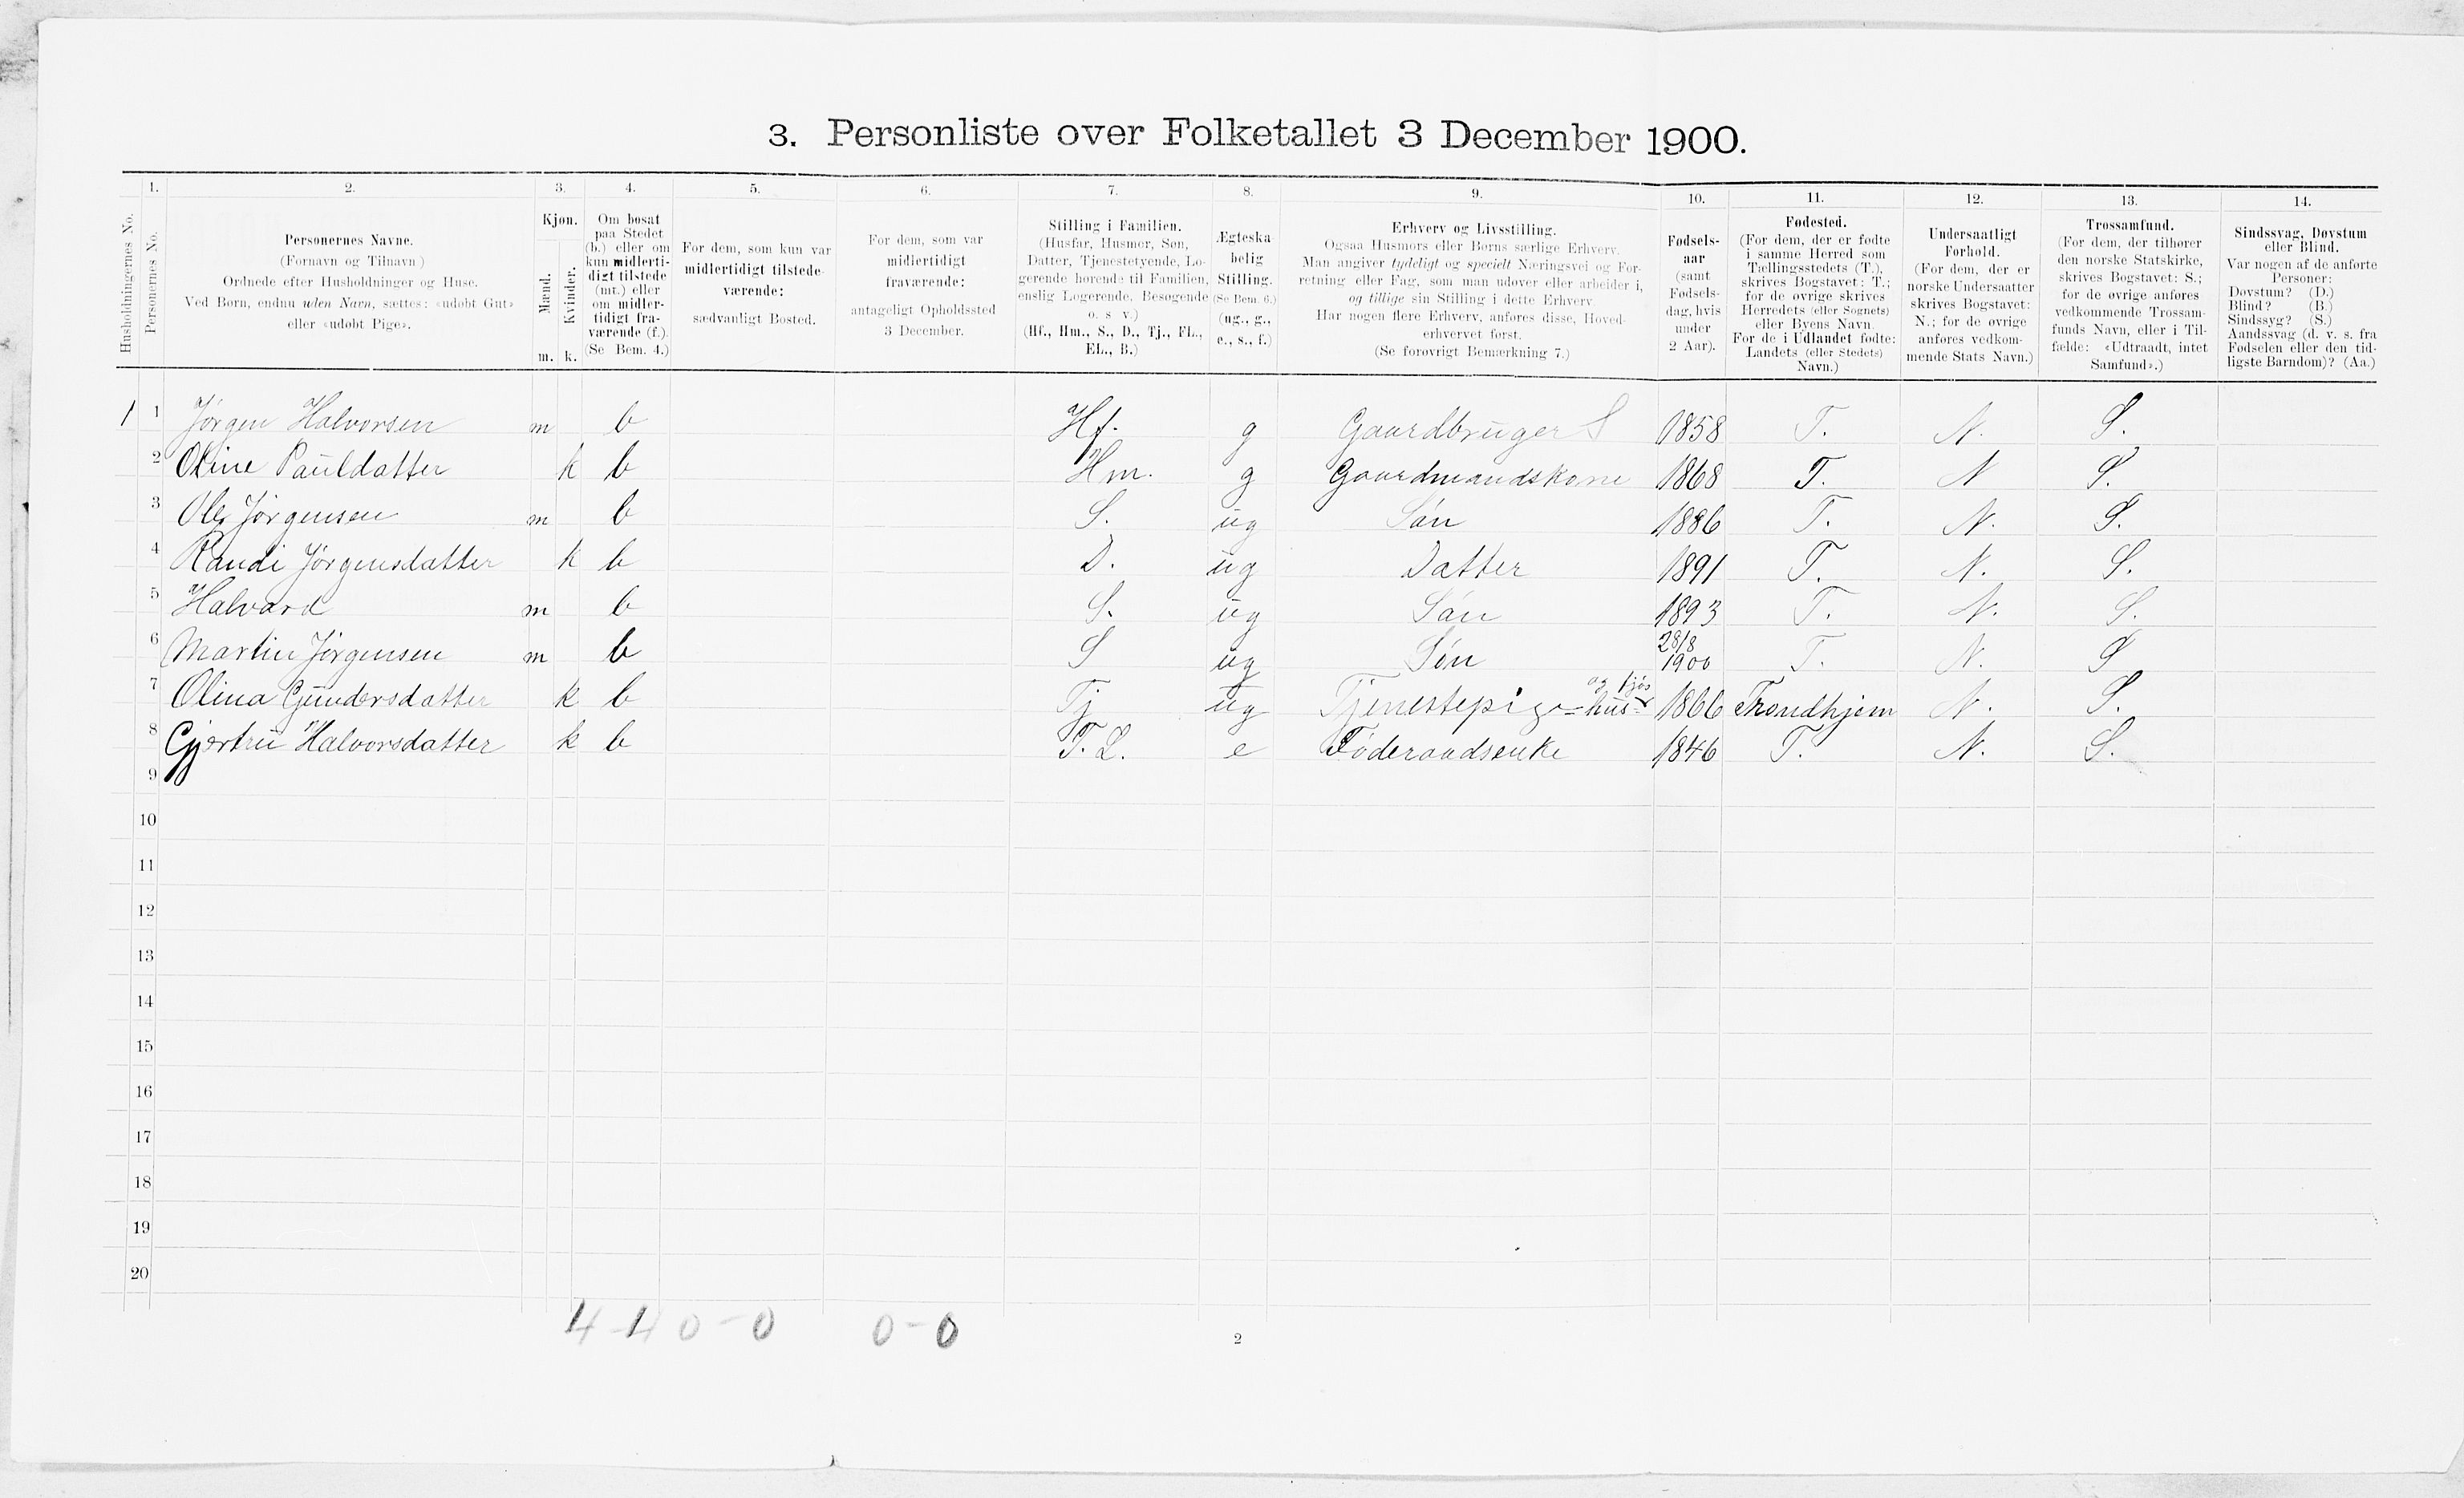 3. Personliste over Folketallet 3 December 1900.
1. 2. 3. 4. 5. 6. 7. 8. 9. 10. 11. 12. 13. 14.
Husholdningernes No.
Personernes No.
Personernes Navne.
(Fornavn og Tilnavn)
Ordnede efter Husholdninger og Huse.
Ved Børn, endnu uden Navn, sættes: «udøbt Gut»
eller «udøbt Pige».
Kjøn.
Mænd.
Kvinder.
m. k.
Om bosat
paa Stedet
(b.) eller om
kun midlerti-
digt tilstede
(mt.) eller
om midler-
tidigt fra-
værende (f.).
(Se Bem. 4.)
For dem, som kun var
midlertidigt tilstede-
værende:
sædvanligt Bosted.
For dem, som var
midlertidigt
fraværende:
antageligt Opholdssted
3 December.
Stilling i Familien.
(Husfar, Husmor, Søn,
Datter, Tjenestetyende, Lo-
gerende hørende til Familien,
enslig Logerende, Besøgende
o. s. v.)
(Hf., Hm., S., D., Tj., FL.,
EL., B.)
Ægteska-
belig
Stilling.
(Se Bem. 6.)
(ug., g.,
e., s., f.)
Erhverv og Livsstilling.
Ogsaa Husmors eller Børns særlige Erhverv.
Man angiver tydeligt og specielt Næringsvei og For-
retning eller Fag, som man udøver eller arbeider i,
og tillige sin Stilling i dette Erhverv.
Har nogen flere Erhverv, anføres disse, Hoved-
erhvervet først.
(Se forøvrigt Bemærkning 7.)
Fødsels-
aar
(samt
Fødsels-
dag, hvis
under
2 Aar).
Fødested.
(For dem, der er fødte
i samme Herred som
Tællingsstedets (T.),
skrives Bogstavet: T.;
for de øvrige skrives
Herredets (eller Sognets)
eller Byens Navn.
For de i Udlandet fødte:
Landets (eller Stedets)
Navn.)
Undersaatligt
Forhold.
(For dem, der er
norske Undersaatter
skrives Bogstavet:
N.; for de øvrige
anføres vedkom-
mende Stats Navn.)
Trossamfund.
(For dem, der tilhører
den norske Statskirke,
skrives Bogstavet: S.;
for de øvrige anføres
vedkommende Trossam-
funds Navn, eller i Til-
fælde: «Udtraadt, intet
Samfund».)
Sindssvag, Døvstum
eller Blind.
Var nogen af de anførte
Personer:
Døvstum? (D.)
Blind? (B.)
Sindssyg? (S.)
Aandssvag (d. v. s. fra
Fødselen eller den tid-
ligste Barndom)? (Aa.)
1 1 Jørgen Halvorsen m b Hf. g Gaardbruger S 1858 T. N. S.
2 Oline Pauldatter k b Hm. g Gaardmandskone 1868 T. N S.
3 Ole Jørgensen m b S. ug Søn 1886 T. N. S.
4 Randi Jørgensdatter k b D. ug Datter 1891 T. N. S.
5 Halvard m b S. ug Søn 1893 T. N. S.
6 Martin Jørgensen m b S ug Søn 28/8 1900 T. N. S
7 Olina Gundersdatter k b Tj ug Tjenestepige = hus- og fjøs 1866 Trondhjem N. S.
8 Gjertru Halvorsdatter k b F. L. e Føderaadsenke 1846 T. N. S.
9
10
11
12
13
14
15
16
17
18
19
20
4-4 0-0 0-0
2